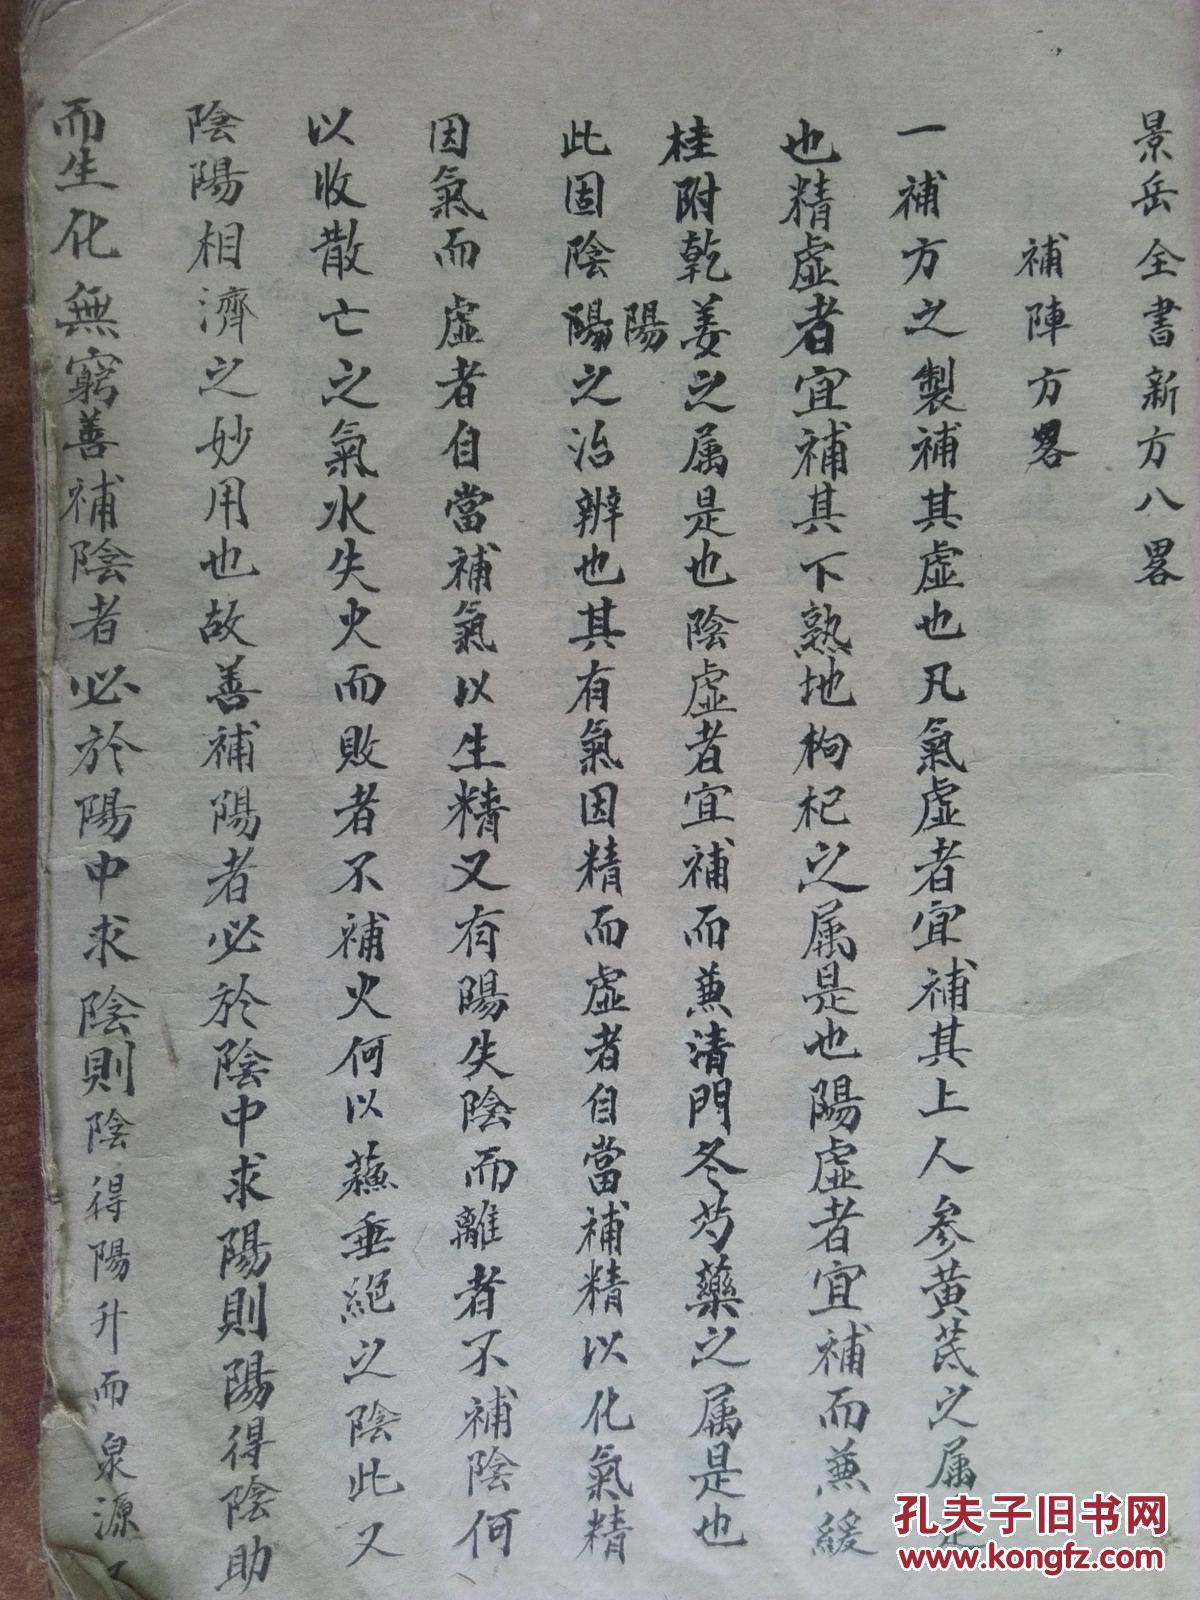 景岳全書新方八畧
補陣方畧
一補方之製補其虛也凡氣虛者宜補其上人參黃芪之属是
也精虛者宜補其下熟地枸杞之属是也陽虛者宜補而兼緩
桂附乾姜之属是也陰虛者宜補而兼清門冬芍藥之属是也
陽
此固陰陽之治辨也其有氣因精而虛者自當補精以化氣精
因氣而虛者自當補氣以生精又有陽失陰而離者不補陰何
以收散亡之氣水失火而敗者不補火何以蘓垂絕之陰此又
陰陽相濟之妙用也故善補陽者必於陰中求陽則陽得陰助
而生化無窮善補陰者必於陽中求陰則陰得陽升而泉源不
孔夫子旧书网
www.kongfz.com